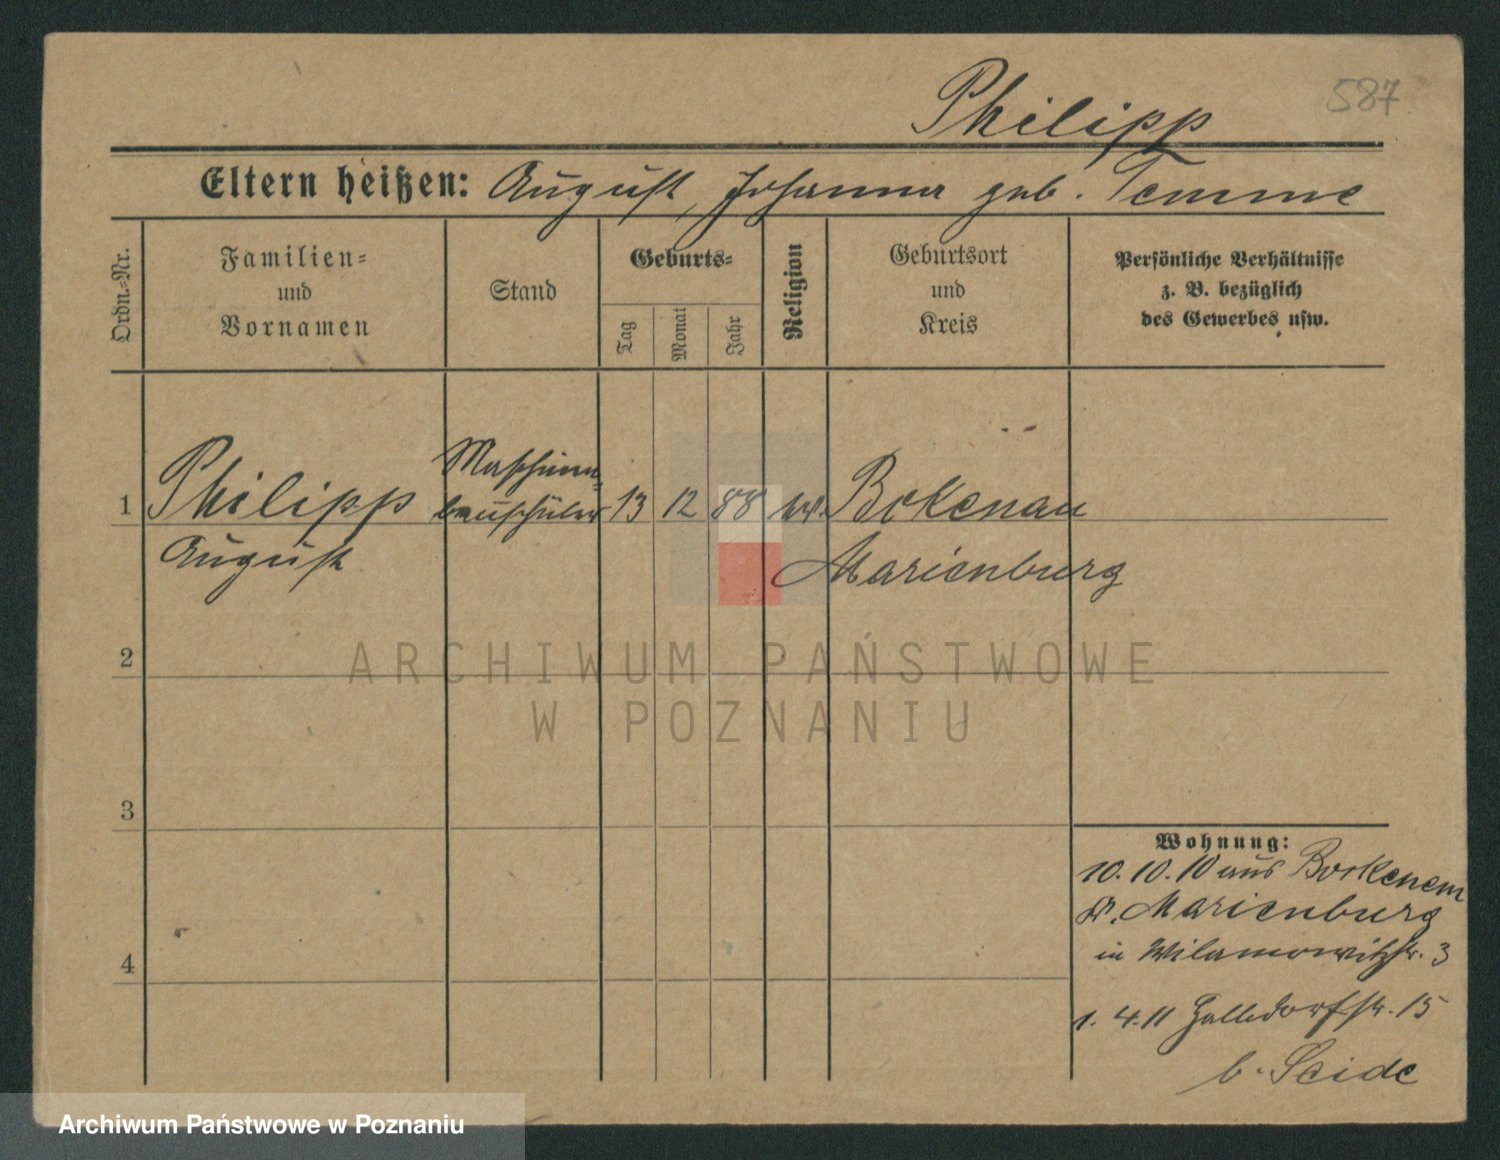 587
Philipp
Eltern heißen: August, Johanna geb. Temme
Ordn.-Nr.
Familien- und Vornamen
Stand
Geburts-
Tag
Monat
Jahr
Religion
Geburtsort und Kreis
Persönliche Verhältnisse
z. B. bezüglich
des Gewerbes usw.
1 Philipp Maschinen- 13 12 88 Bokenau
August bauschüler Marienburg
2
ARCHIWUM PAŃSTWOWE
W POZNANIU
3
4
Wohnung:
10.10.10 aus Borkenem
Kr. Marienburg
in Wilamowitzstr. 3
1. 4. 11 15
b. Seide
Archiwum Państwowe w Poznaniu